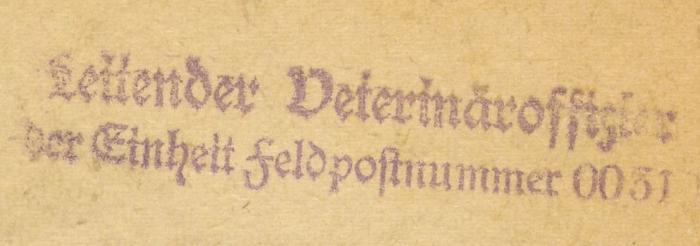 Leitender Veterinäroffizier
der Einheit Feldpostnummer 0031